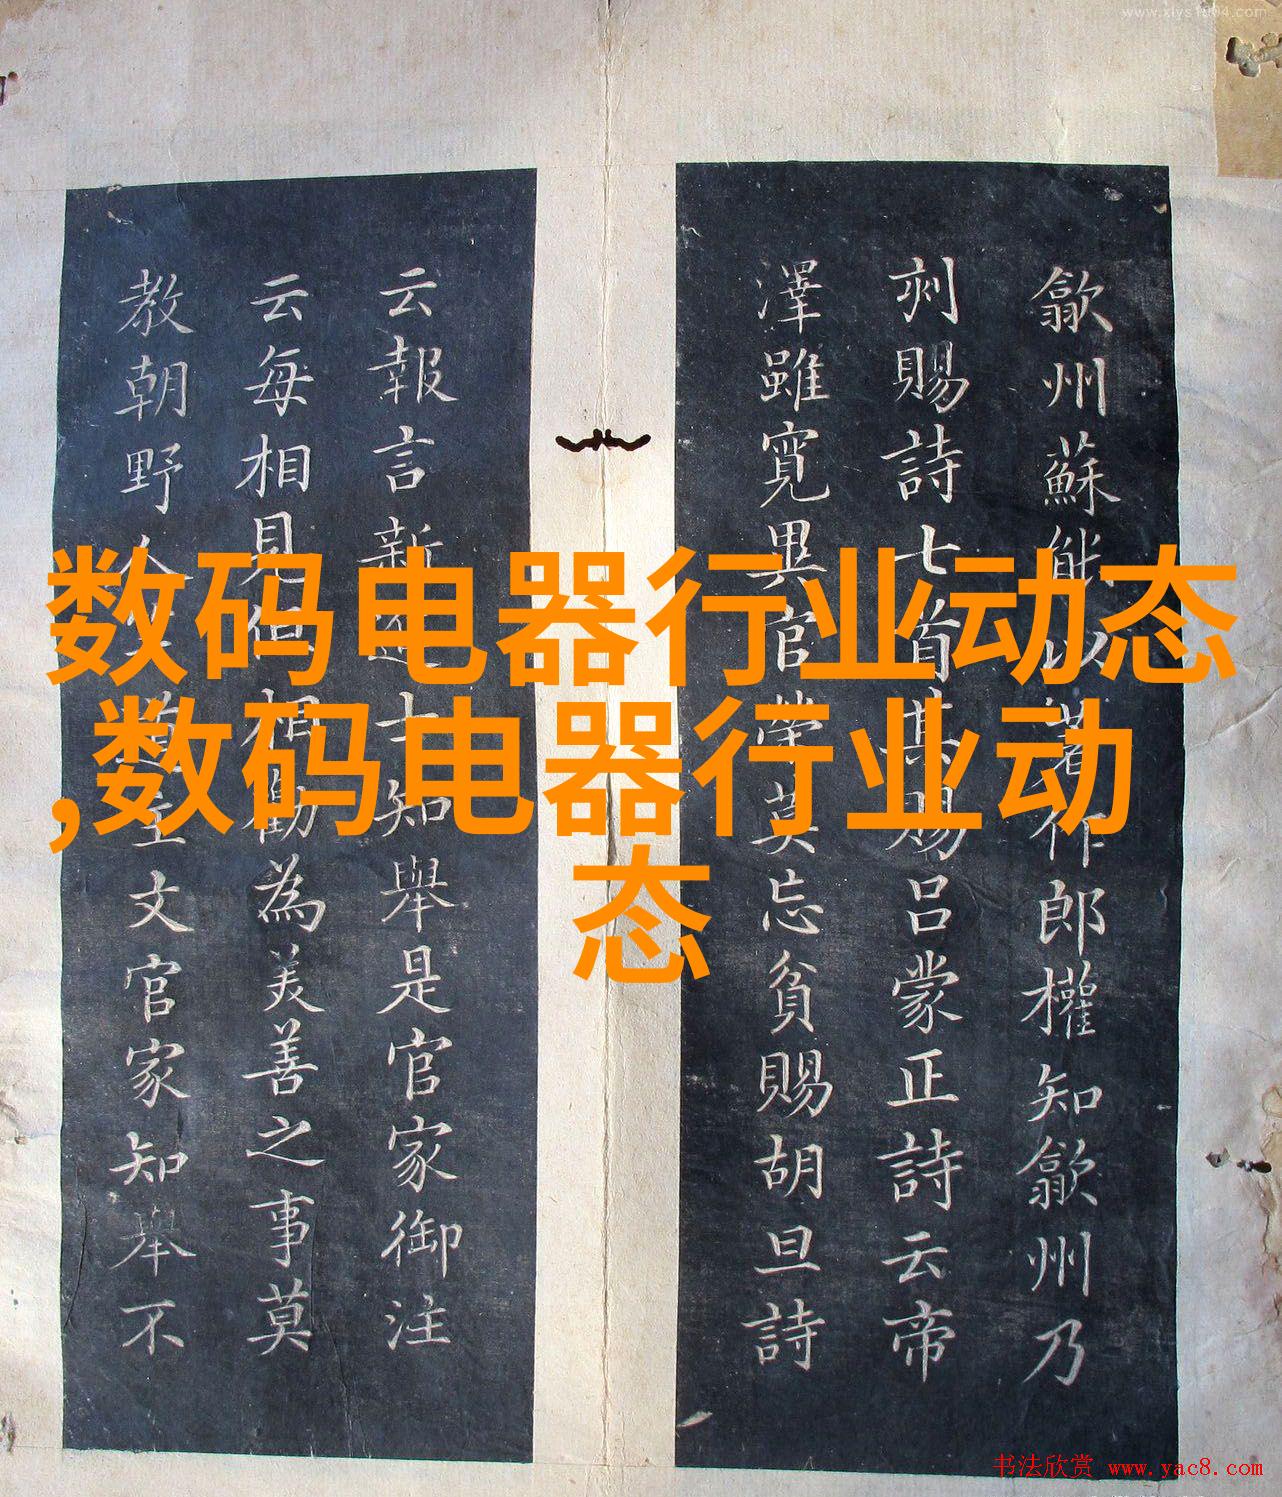 www.xiys1004.com
数码电器行业动态
,数码电器行业动
态
歙州蘇能以著作郎權知歙州乃
刾賜詩七首其賜呂蒙正詩云帝
澤雖寬異官榮莫忘貧賜胡旦詩
云報言新進士知舉是官家御注
云每相見但相勸為美善之事莫
教朝野人主文官家知舉不
书法欣赏 www.yac8.com